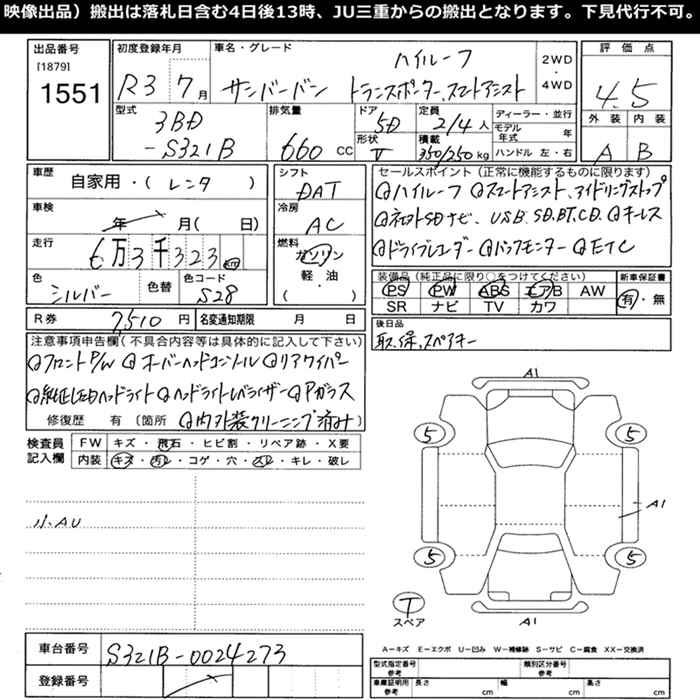 映像出品）搬出は落札日含む4日後13時、JU三重からの搬出となります。下見代行不可。
出品番号
[1879]
1551
初度登録年月
R3 7月
車名・グレード
ハイルーフ
サンバーバン トランスポーター、スマートアシスト
2WD
・
4WD
評価点
4.5
外装 内装
A B
型式
3BD
-S321B
排気量
660 CC
ドア
5D
形状
V
定員
2/4人
積載
350/250kg
ディーラー・並行
モデル年式 年
ハンドル 左・右
車歴
自家用・(レンタ)
車検
年 月( 日)
走行
6万3千323km
色
シルバー
色替
色コード
S28
シフト
DAT
冷房
AC
燃料
ガソリン
軽・油
( )
セールスポイント（正常に機能するものに限ります）
◎ハイルーフ ◎スマートアシスト、アイドリングストップ
◎ネオトSDナビ、USB、SD、BT、CD、◎キーレス
◎ドライブレコーダー ◎バックモニター ◎ETC
装備品（純正品に限り○をつけてください）
PS PW ABS エアB AW
SR ナビ TV カワ
新車保証書
有・無
R券 7,510円
名変通知期限 月 日
後日品
取、保、スペアキー
注意事項申告欄（不具合内容等は具体的に記入して下さい）
◎フロントP/W ◎オーバーヘッドコンソール ◎リアワイパー
◎純正LEDヘッドライト ◎ヘッドライトレベライザー ◎Pガラス
修復歴 有（箇所 ◎内外装クリーニング済み）
検査員
記入欄
FW キズ・飛石・ヒビ割・リペア跡・X要
内装 キズ・汚レ・コゲ・穴・スレ・キレ・破レ
小、AU
A1
5 5
A1
5 5
T
スペア
A1
A－キズ E－エクボ U－凹み W－補修跡 S－サビ C－腐食 XX－交換済
車台番号 S321B-0024273
登録番号
型式指定番号
参考
類別区分番号
参考
車庫証明用
参考
長さ cm 幅 cm 高さ cm